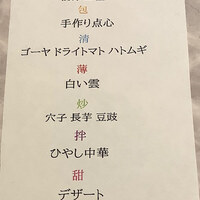 包
手作り点心
清
ゴーヤ ドライトマト ハトムギ
薄
白い雲
炒
穴子 長芋 豆豉
拌
ひやし中華
甜
デザート